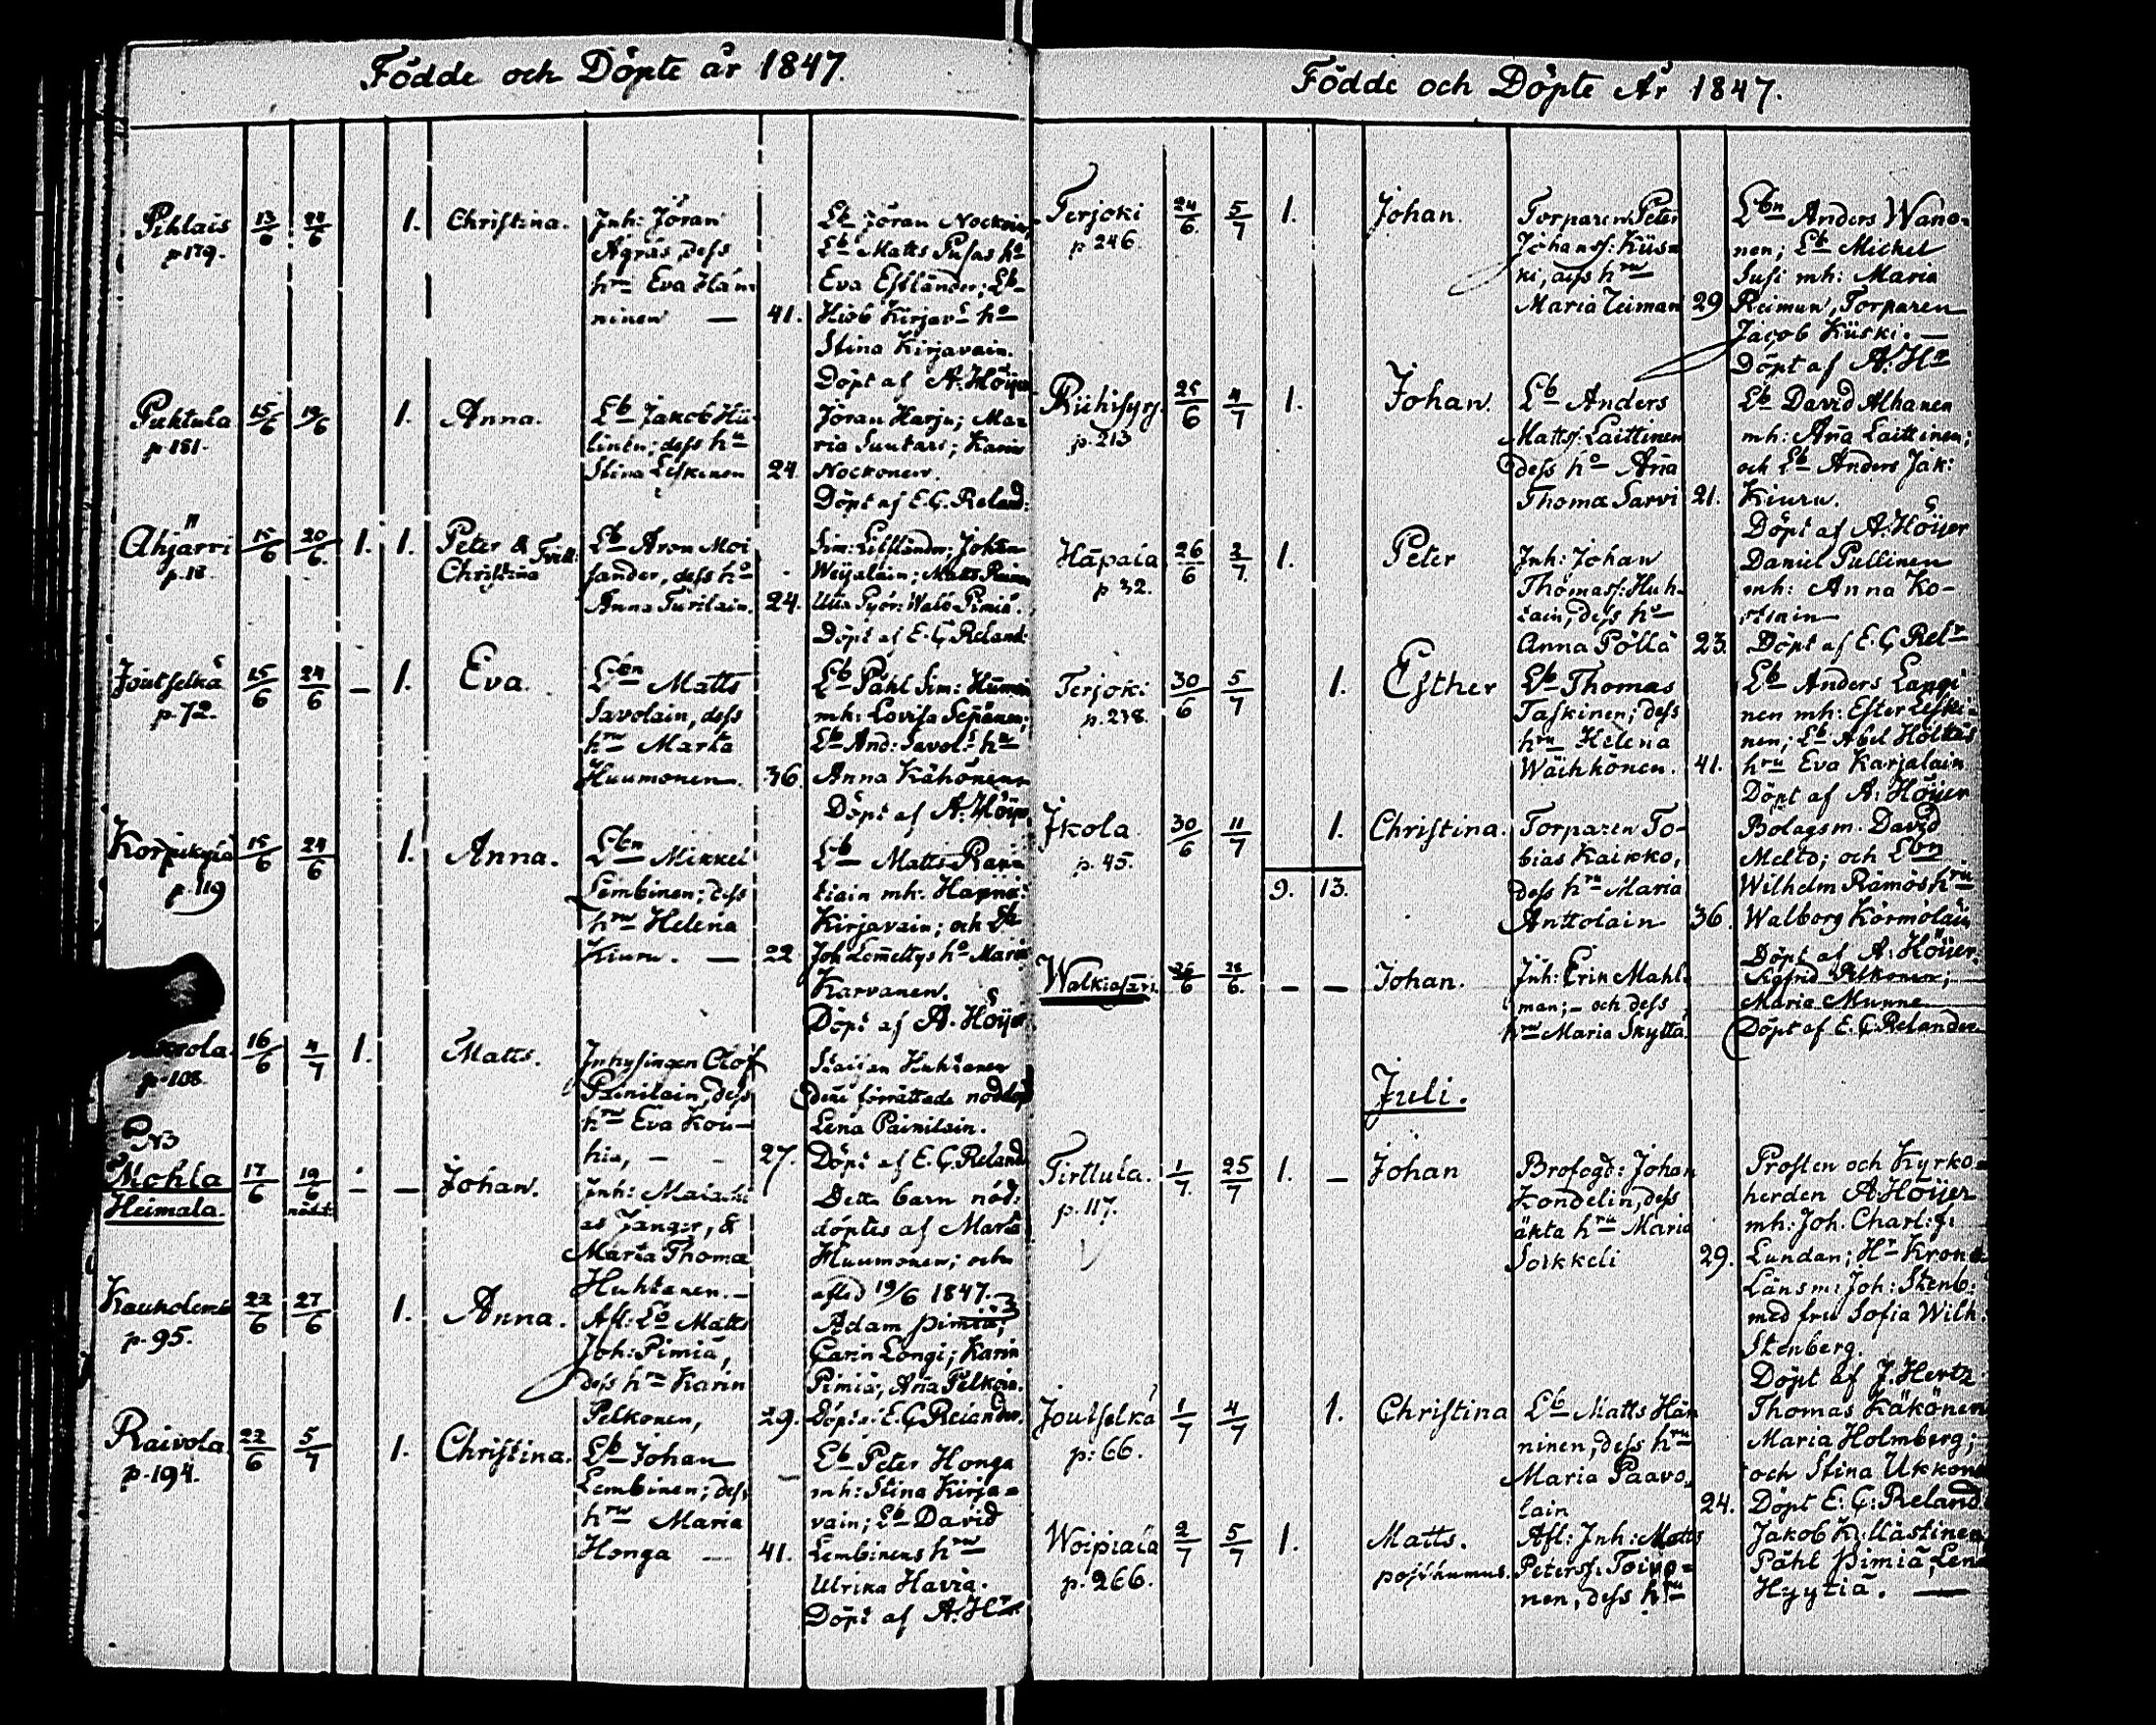 Födde och Döpte år 1847.
Pihlais 13/6 24/6 1. Christina. Inh: Jöran
p 179. Agräs, dess
hru Eva Hän-
ninen — 41.
Lb Jöran Nockoin,
Lb Matts Pusas ho
Eva Estlander; Lb
Hiob Kirjav: ho
Stina Kirjavain.
Döpt af A. Höijer
Puhtula 15/6 19/6 1. Anna. Lb Jakob Hü-
p. 181. dess hu
Stina Leskinen 24.
Jöran Harju; Ma-
ria Suutari; Karin
Nockonen.
Döpt af E. G. Reland:
Ahjärvi 15/6 20/6. 1. 1. Peter & Lb Aron Moi
p. 18. Christina sander, dess ho
Anna Turilain. 24.
Johan
Weijalain; Matts
Pimiä.
Döpt af E. G. Reland:
Joutselkä 15/6 24/6 – 1. Eva. Lbn Matts
p. 72. Savolain, dess
hru Marta
Huumonen. 36.
Lb Påhl Sim:
mh: Lovisa Sepänen;
Lb And: Savol: hu
Anna Kähönen
Döpt af A. Höijer
Korpikylä 15/6 24/6 1. Anna. Lbn Mikkel
p. 119 Lembinen; dess
hru Helena
Kiuru. — 22.
Lb Matts
mh.
Kirjavain; och Lb
Joh Lemettys ho Maria
Karvanen.
Döpt af A. Höijer
16/6 4/7 1. Matts. Inhysingen Olof
p. 108. Painilain, dess
hru Eva Kou-
hia, – – 27.
Huhtanen
förrättade nöddop
Lena Painilain.
Döpt af E. G. Reland
NB
Mohla 17/6 19/6 – – Johan. Inh:
Heimala. nödd:
as Janger, &
Maria Thoma
Huhtanen. –
Detta barn nöd:
döptes af Maria
Huumonen; och
afled 19/6 1847.
22/6 27/6 1. Anna. Afl: Lb Matts
p. 95. Joh: Pimiä,
dess hru Karin
Pelkonen, 29.
Adam Pimiä;
Carin Longi; Karin
Pimiä; Aña Pelkoin.
Döpt af E. G. Relander.
Raivola 22/6 5/7 1. Christina. Lb Johan
p. 194. Lembinen; dess
hru Maria
Honga — 41.
Lb Peter Honga
mh: Stina Kirja-
vain; Lb David
Lembinens hru
Ulrika Havia.
Döpt af A. Hr
Födde och Döpte År 1847.
Terjoki 24/6. 5/7 1. Johan. Torparen Peter
p. 246. Johanss: Küs-
ki, dess hru
Maria Teiman 29
Lbn Anders Wano-
nen; Lb Mickel
Susi mh: Maria
Reimun, Torparen
Jacob Küski. —
Döpt af A. Hr
25/6 4/7 1. Johan. Lb Anders
p. 213 Mattss: Laittinen
dess ho Aña
Thomæ Sarvi 21.
Lb David Alhanen
mh: Aña Laittinen;
och Lb Anders Jak:
Kiuru.
Döpt af A. Höijer
Hapala 26/6 2/7. 1. Peter Inh: Johan
p 32. Thomass: Huh-
tain, dess hu
Anna Pöllä 23.
Daniel Pullinen
mh: Anna Ko-
Döpt af E. G. Relr
Terjoki 30/6 5/7 1. Esther Lb Thomas
p. 238. Taskinen; dess
hru Helena
Wäihkönen. 41.
Lb Anders Lanqi
nen mh: Ester Leski-
nen; Lb Abel Höltäs
hru Eva Karjalain
Döpt af A. Höijer
Ikola 30/6 11/7 1. Christina. Torparen To-
p. 45. bias Kaikko,
9. 13. dess hru Maria
Anttolain 36.
Bolagsm. David
Melto; och Lbn
Wilhelm Rämös hru
Walborg Kormolain
Döpt af A: Höijer.
Walkiasari. 26/6 28/6. – – Johan. Inh: Erik Mahl-
man; – och dess
hru Maria Skyttä.
Sigfrid Pelkonen;
Maria Munne
Döpt af E. G. Relander
Juli.
Tirttula. 1/7. 25/7 1. – Johan Brofogd: Johan
p. 117. Kondelin, dess
äkta hru Maria
Sorkkeli 29.
Prosten och Kyrko-
herden A. Höijer
mh: Joh. Charl: f.
Lundan; Hr Krono
Länsm: Joh: Stenb:
med fru Sofia Wilh:
Stenberg.
Döpt af J. Hertz
Joutselkä 1/7 4/7 1. Christina Lb Matts Hän
p: 66. ninen, dess hru
Maria Paavo-
lain 24.
Thomas Käkönen
Maria Holmberg;
och Stina Ukkone
Döpt E. G: Reland
Woipiala 2/7 5/7 1. Matts. Afl: Inh: Matts
p. 266. posthumus. Peterss: Toivo-
nen, dess hru
Jakob
Påhl Pimiä, Lena
Hyytiä. —